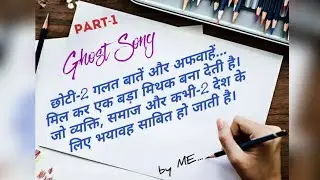 PART-1
Ghost Song
छोटी-2 गलत बातें और अफवाहें...
मिल कर एक बड़ा मिथक बना देती है।
जो व्यक्ति, समाज और कभी-2 देश के
लिए भयावह साबित हो जाती है।
by ME...